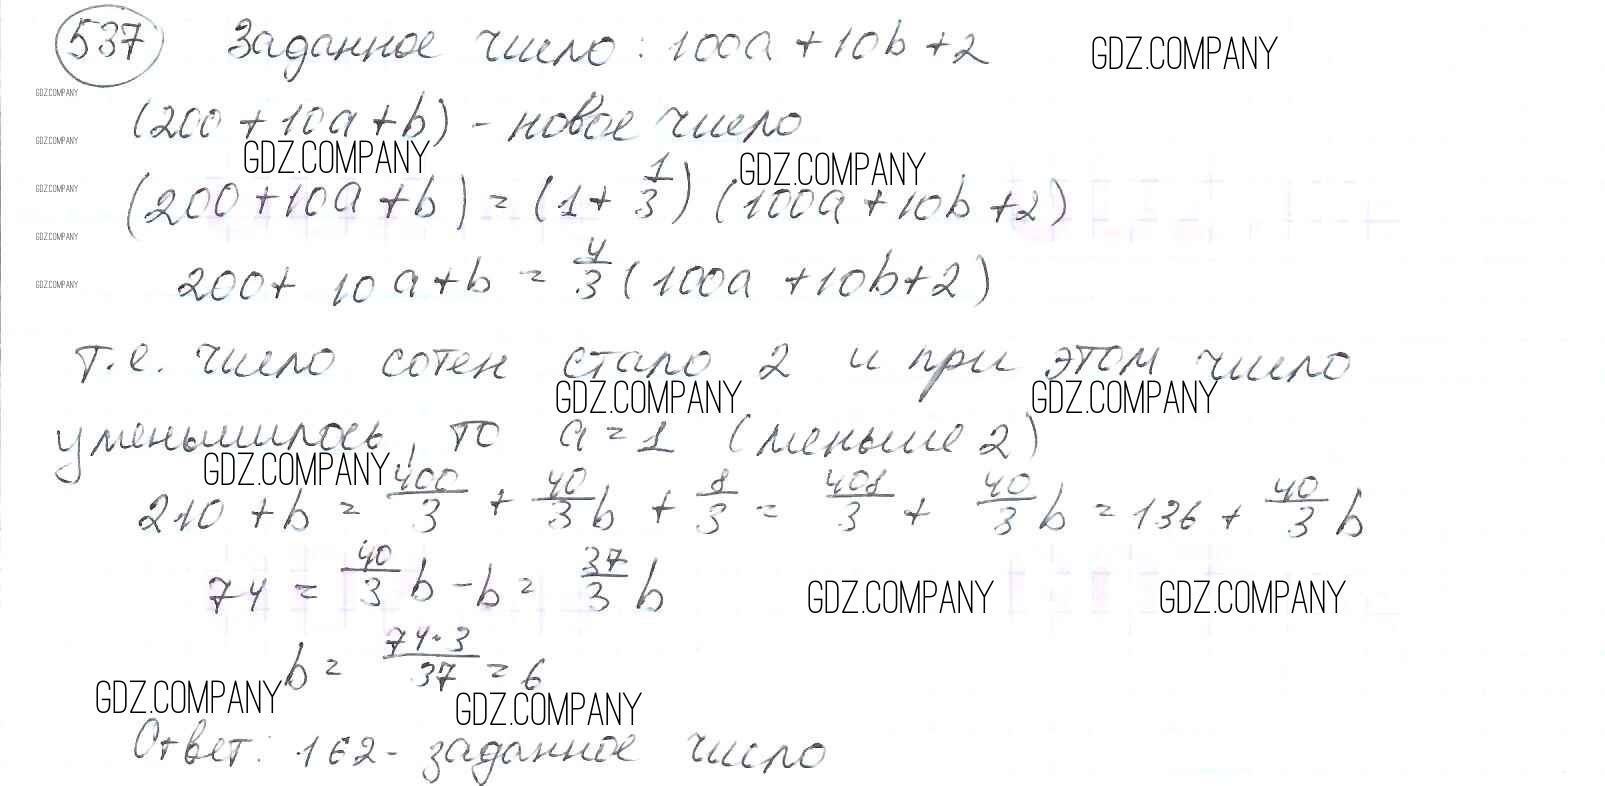 537 Заданное число: 100a + 10b + 2 GDZ.COMPANY
GDZ.COMPANY
(200 + 10a + b) - новое число
GDZ.COMPANY
GDZ.COMPANY GDZ.COMPANY
GDZ.COMPANY
(200 + 10a + b) = (1 + 1/3) (100a + 10b + 2)
GDZ.COMPANY
200 + 10a + b = 4/3 (100a + 10b + 2)
GDZ.COMPANY
т.е. число сотен стало 2 и при этом число
GDZ.COMPANY GDZ.COMPANY
уменьшилось, то a = 1 (меньше 2)
GDZ.COMPANY
210 + b = 400/3 + 40/3 b + 8/3 = 408/3 + 40/3 b = 136 + 40/3 b
74 = 40/3 b - b = 37/3 b GDZ.COMPANY GDZ.COMPANY
b = 74·3/37 = 6
GDZ.COMPANY GDZ.COMPANY
Ответ: 162 - заданное число